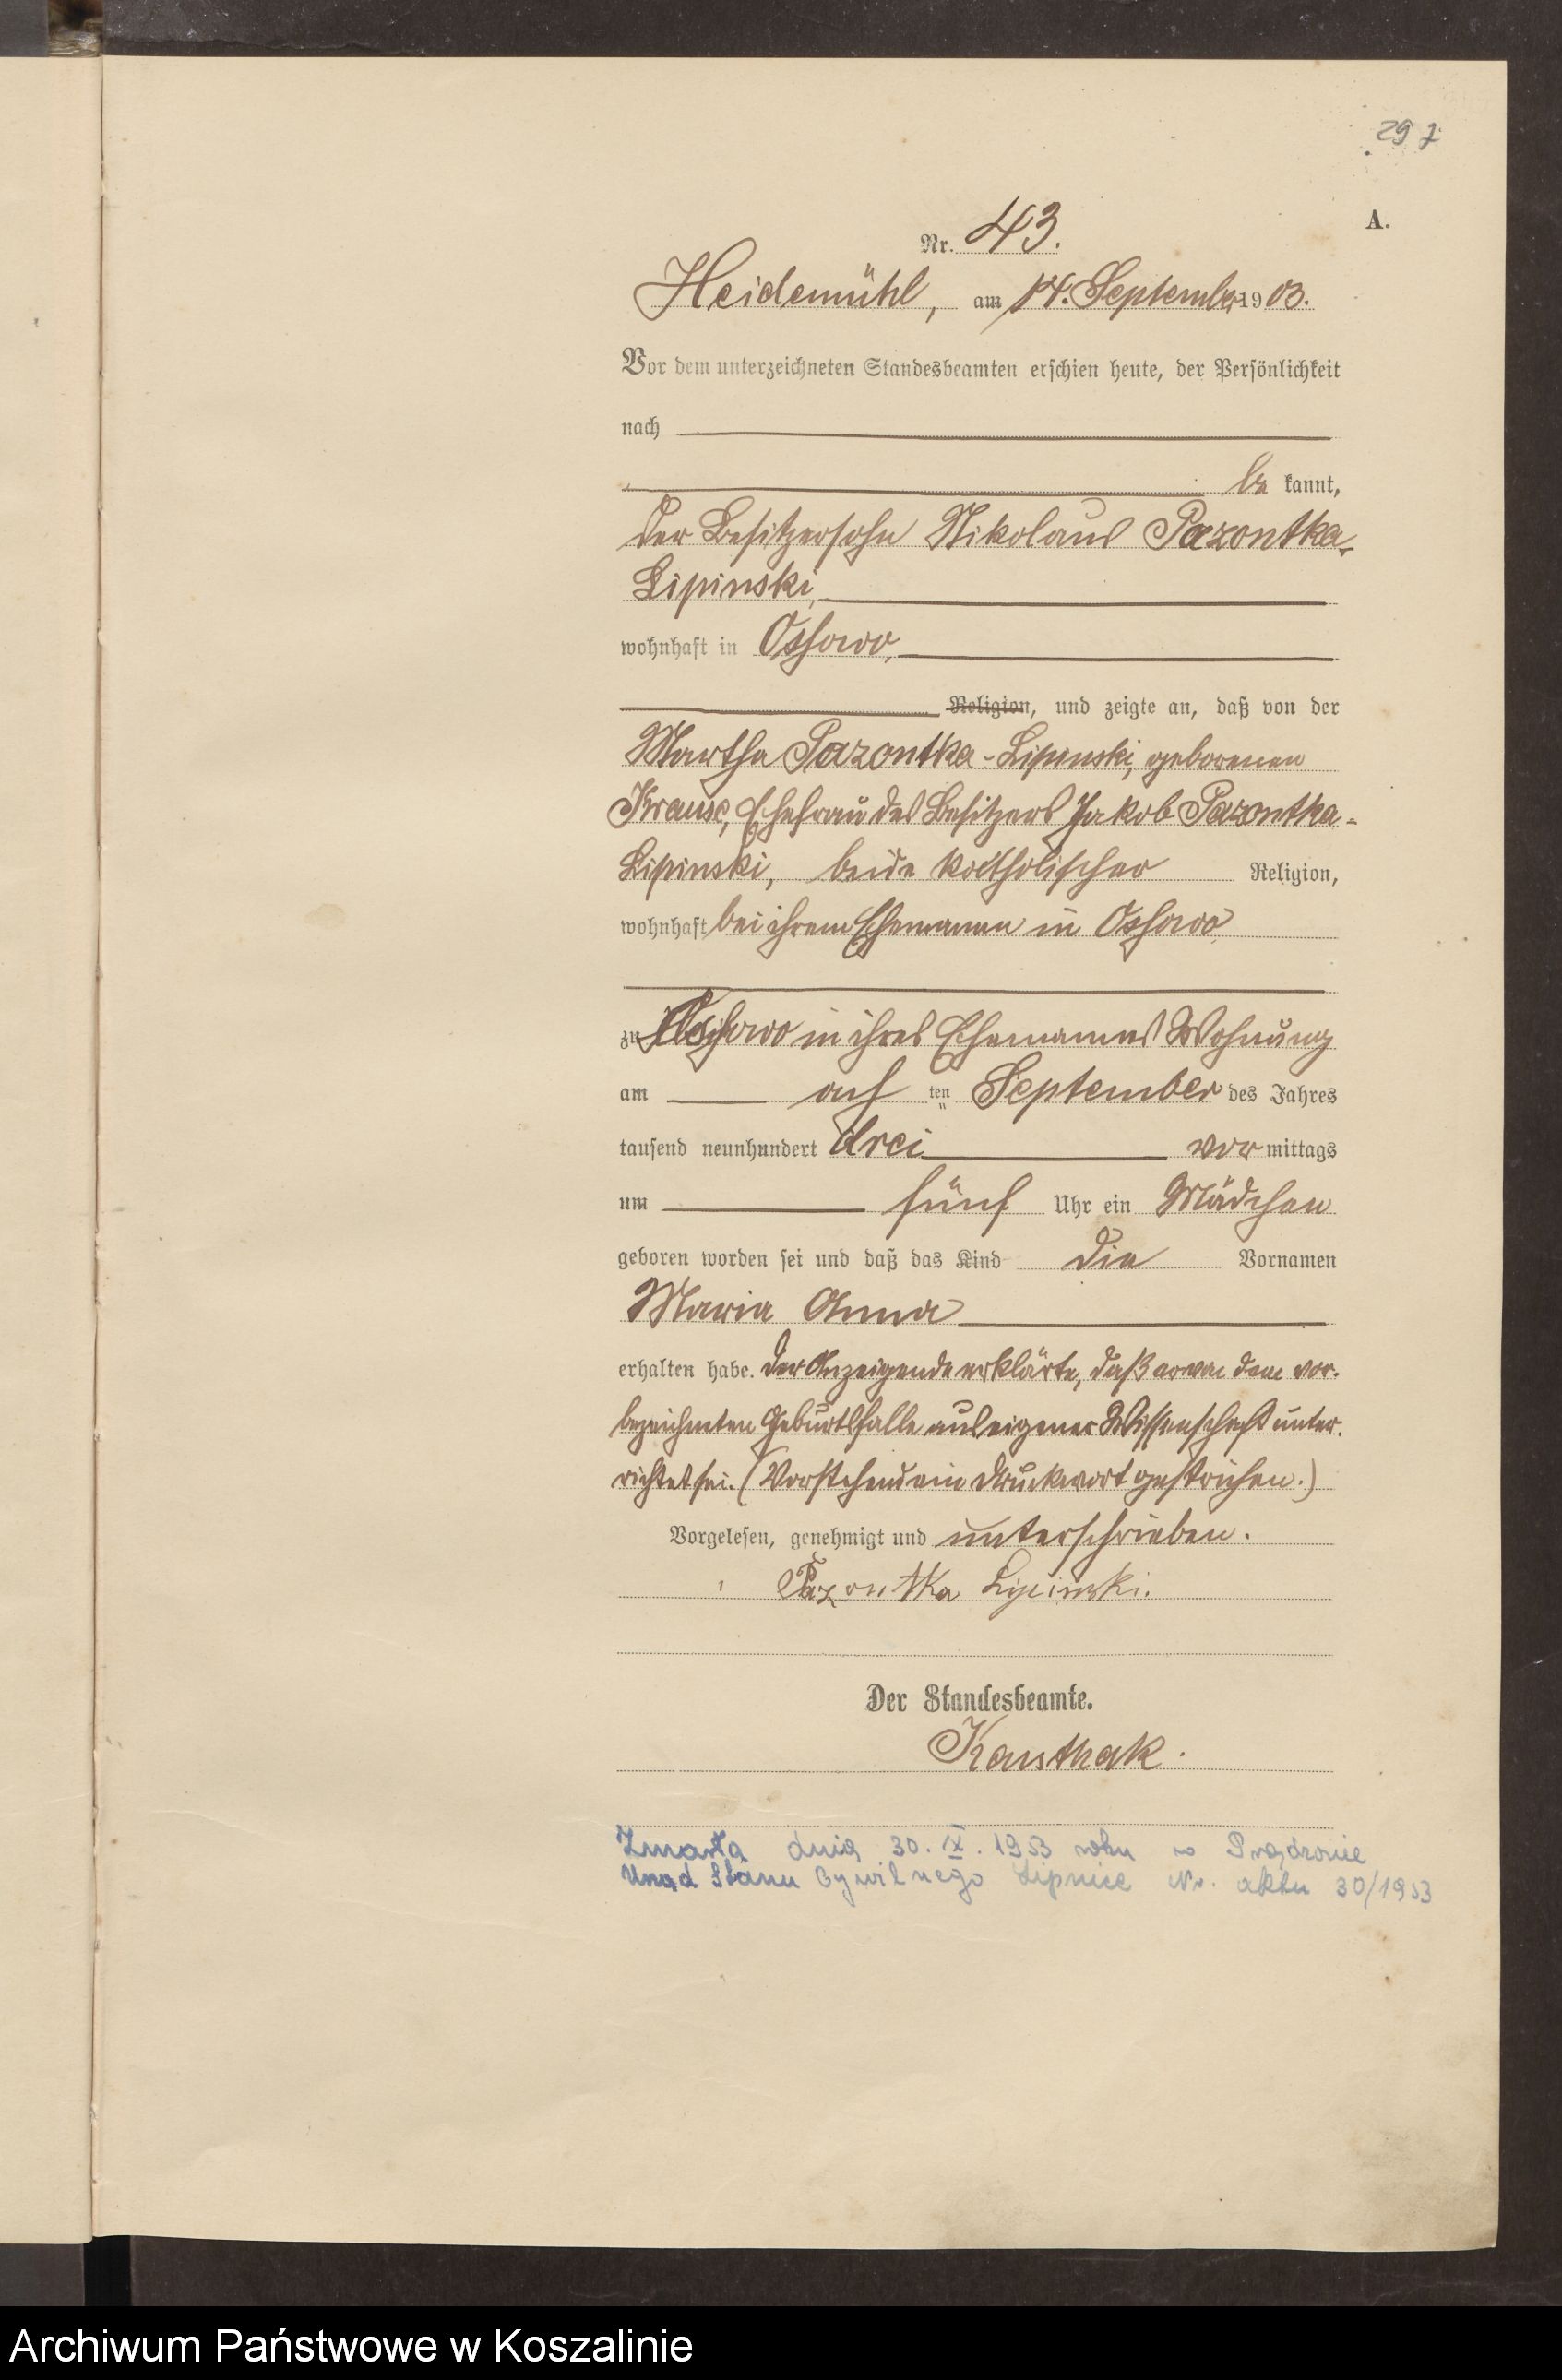 297
A.
Nr. 43.
Heidemühl, am 14. September 1903.
Vor dem unterzeichneten Standesbeamten erschien heute, der Persönlichkeit
nach
be kannt,
der Besitzersohn Nikolaus Pazontka-
Lipinski,
wohnhaft in Ossowo,
Religion, und zeigte an, daß von der
Martha Pazontka-Lipinski, geborenen
Krause, Ehefrau des Besitzers Jakob Pazontka-
Lipinski, beide katholischer Religion,
wohnhaft bei ihrem Ehemanne in Ossowo
zu Ossowo in ihres Ehemannes Wohnung
am acht ten September des Jahres
tausend neunhundert drei vor mittags
um fünf Uhr ein Mädchen
geboren worden sei und daß das Kind die Vornamen
Maria Anna
erhalten habe. Der Anzeigende erklärte, daß er von dem vor-
bezeichneten Geburtsfalle aus eigener Wissenschaft unter-
richtet sei. (Vorstehend ein Druckwort gestrichen.)
Vorgelesen, genehmigt und unterschrieben.
Pazontka Lipinski.
Der Standesbeamte.
Kausthak.
Zmarła dnia 30. IX. 1953 roku w Prądzonie
Urząd Stanu Cywilnego Lipnica Nr. aktu 30/1953
Archiwum Państwowe w Koszalinie